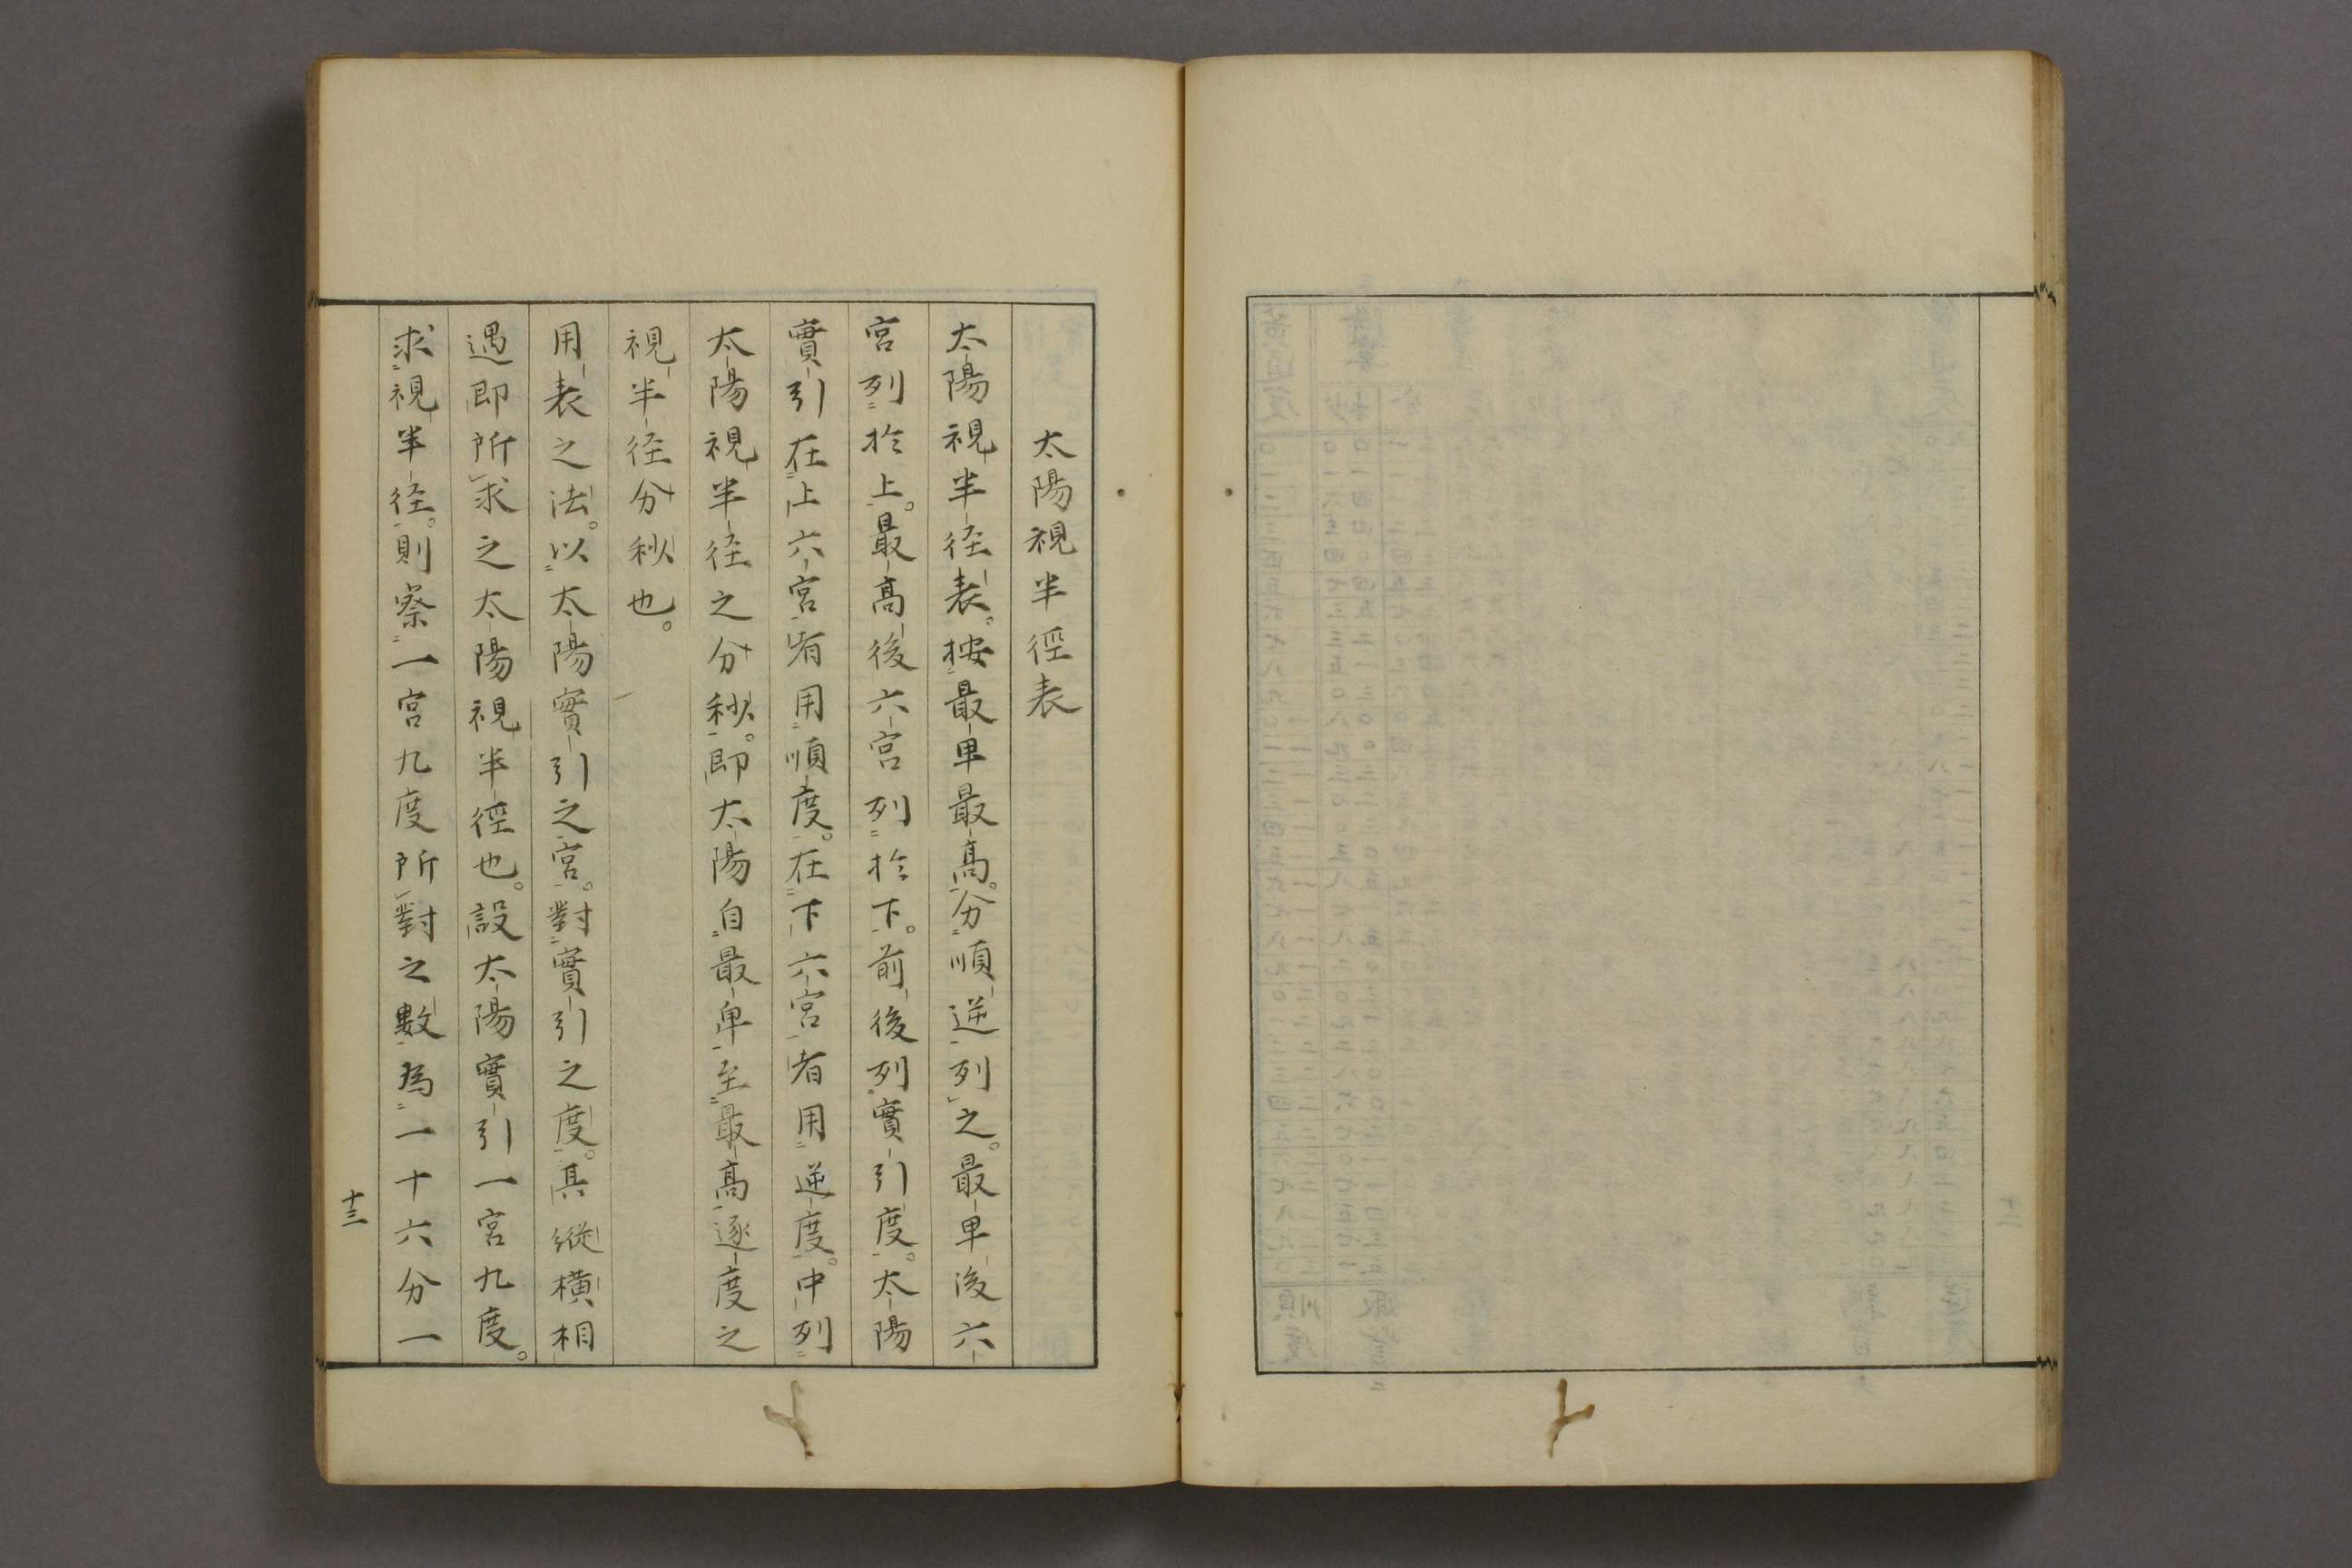 太陽視半徑表
太陽視半径表。按最卑最高。分順逆列之。最卑後六
宮列於上。最高後六宮列於下。前後列實引度。太陽
實引在上六宮者用順度。在下六宮者用逆度。中列
太陽視半径之分秒。即太陽自最卑至最高逐度之
視半径分秒也。
用表之法。以太陽實引之宮。對實引之度。其縦橫相
遇即所求之太陽視半徑也。設太陽實引一宮九度。
求視半径。則察一宮九度所對之數為一十六分一
十三